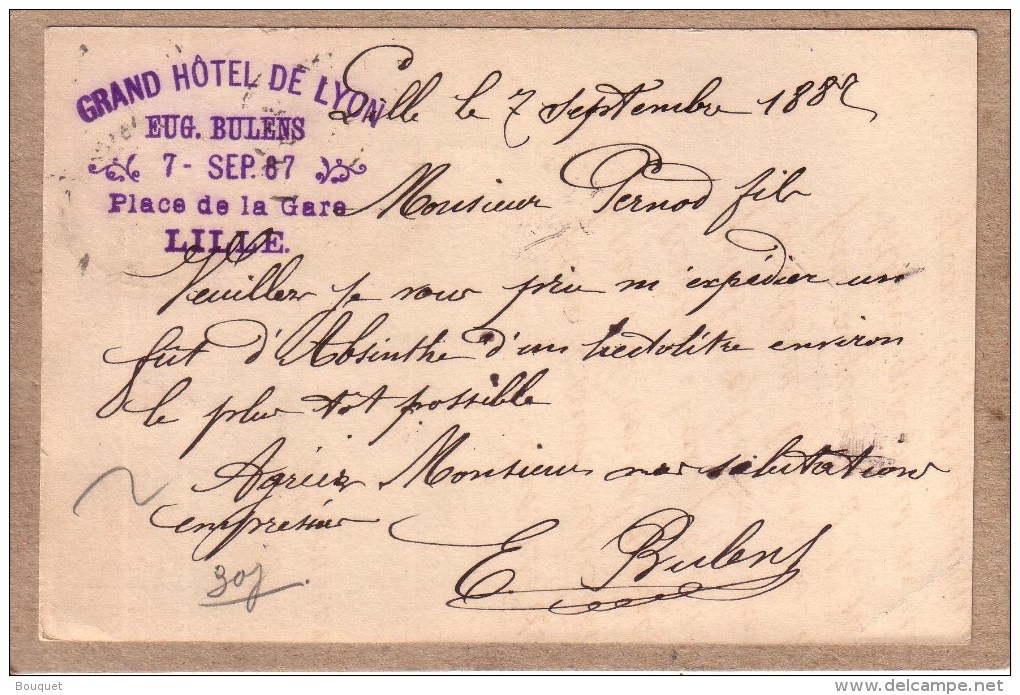 GRAND HÔTEL DE LYON
EUG. BULENS
7 - SEP. 87
Place de la Gare
LILLE.
Lille le 7 Septembre 1887
Monsieur Pernod fils
Veuillez je vous prie m'expédier un
fût d'Absinthe d'un hectolitre environ
le plus tôt possible
Agréez Monsieur mes salutations
empressées
E Bulens
Bouquet
www.delcampe.net